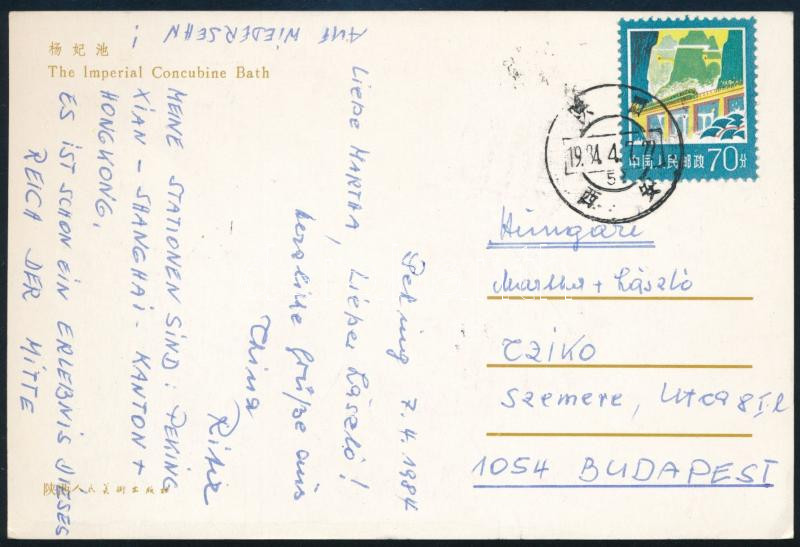 杨妃池
The Imperial Concubine Bath
陕西人民美术出版社
中国人民邮政 70分
陕 西
19.84.4.7.
5
西 安
Peking 7.4.1984
Liebe Martha, Lieber László!
herzliche Grüße aus
China
MEINE STATIONEN SIND: PEKING
XIAN - SHANGHAI - KANTON +
HONGKONG.
ES IST SCHON EIN ERLEBNIS DIESES
REICH DER MITTE
!
AUF WIEDERSEHN
Hungari
Martha + László
CZIKO
Szemere, Utca 8 I.
1054 BUDAPEST